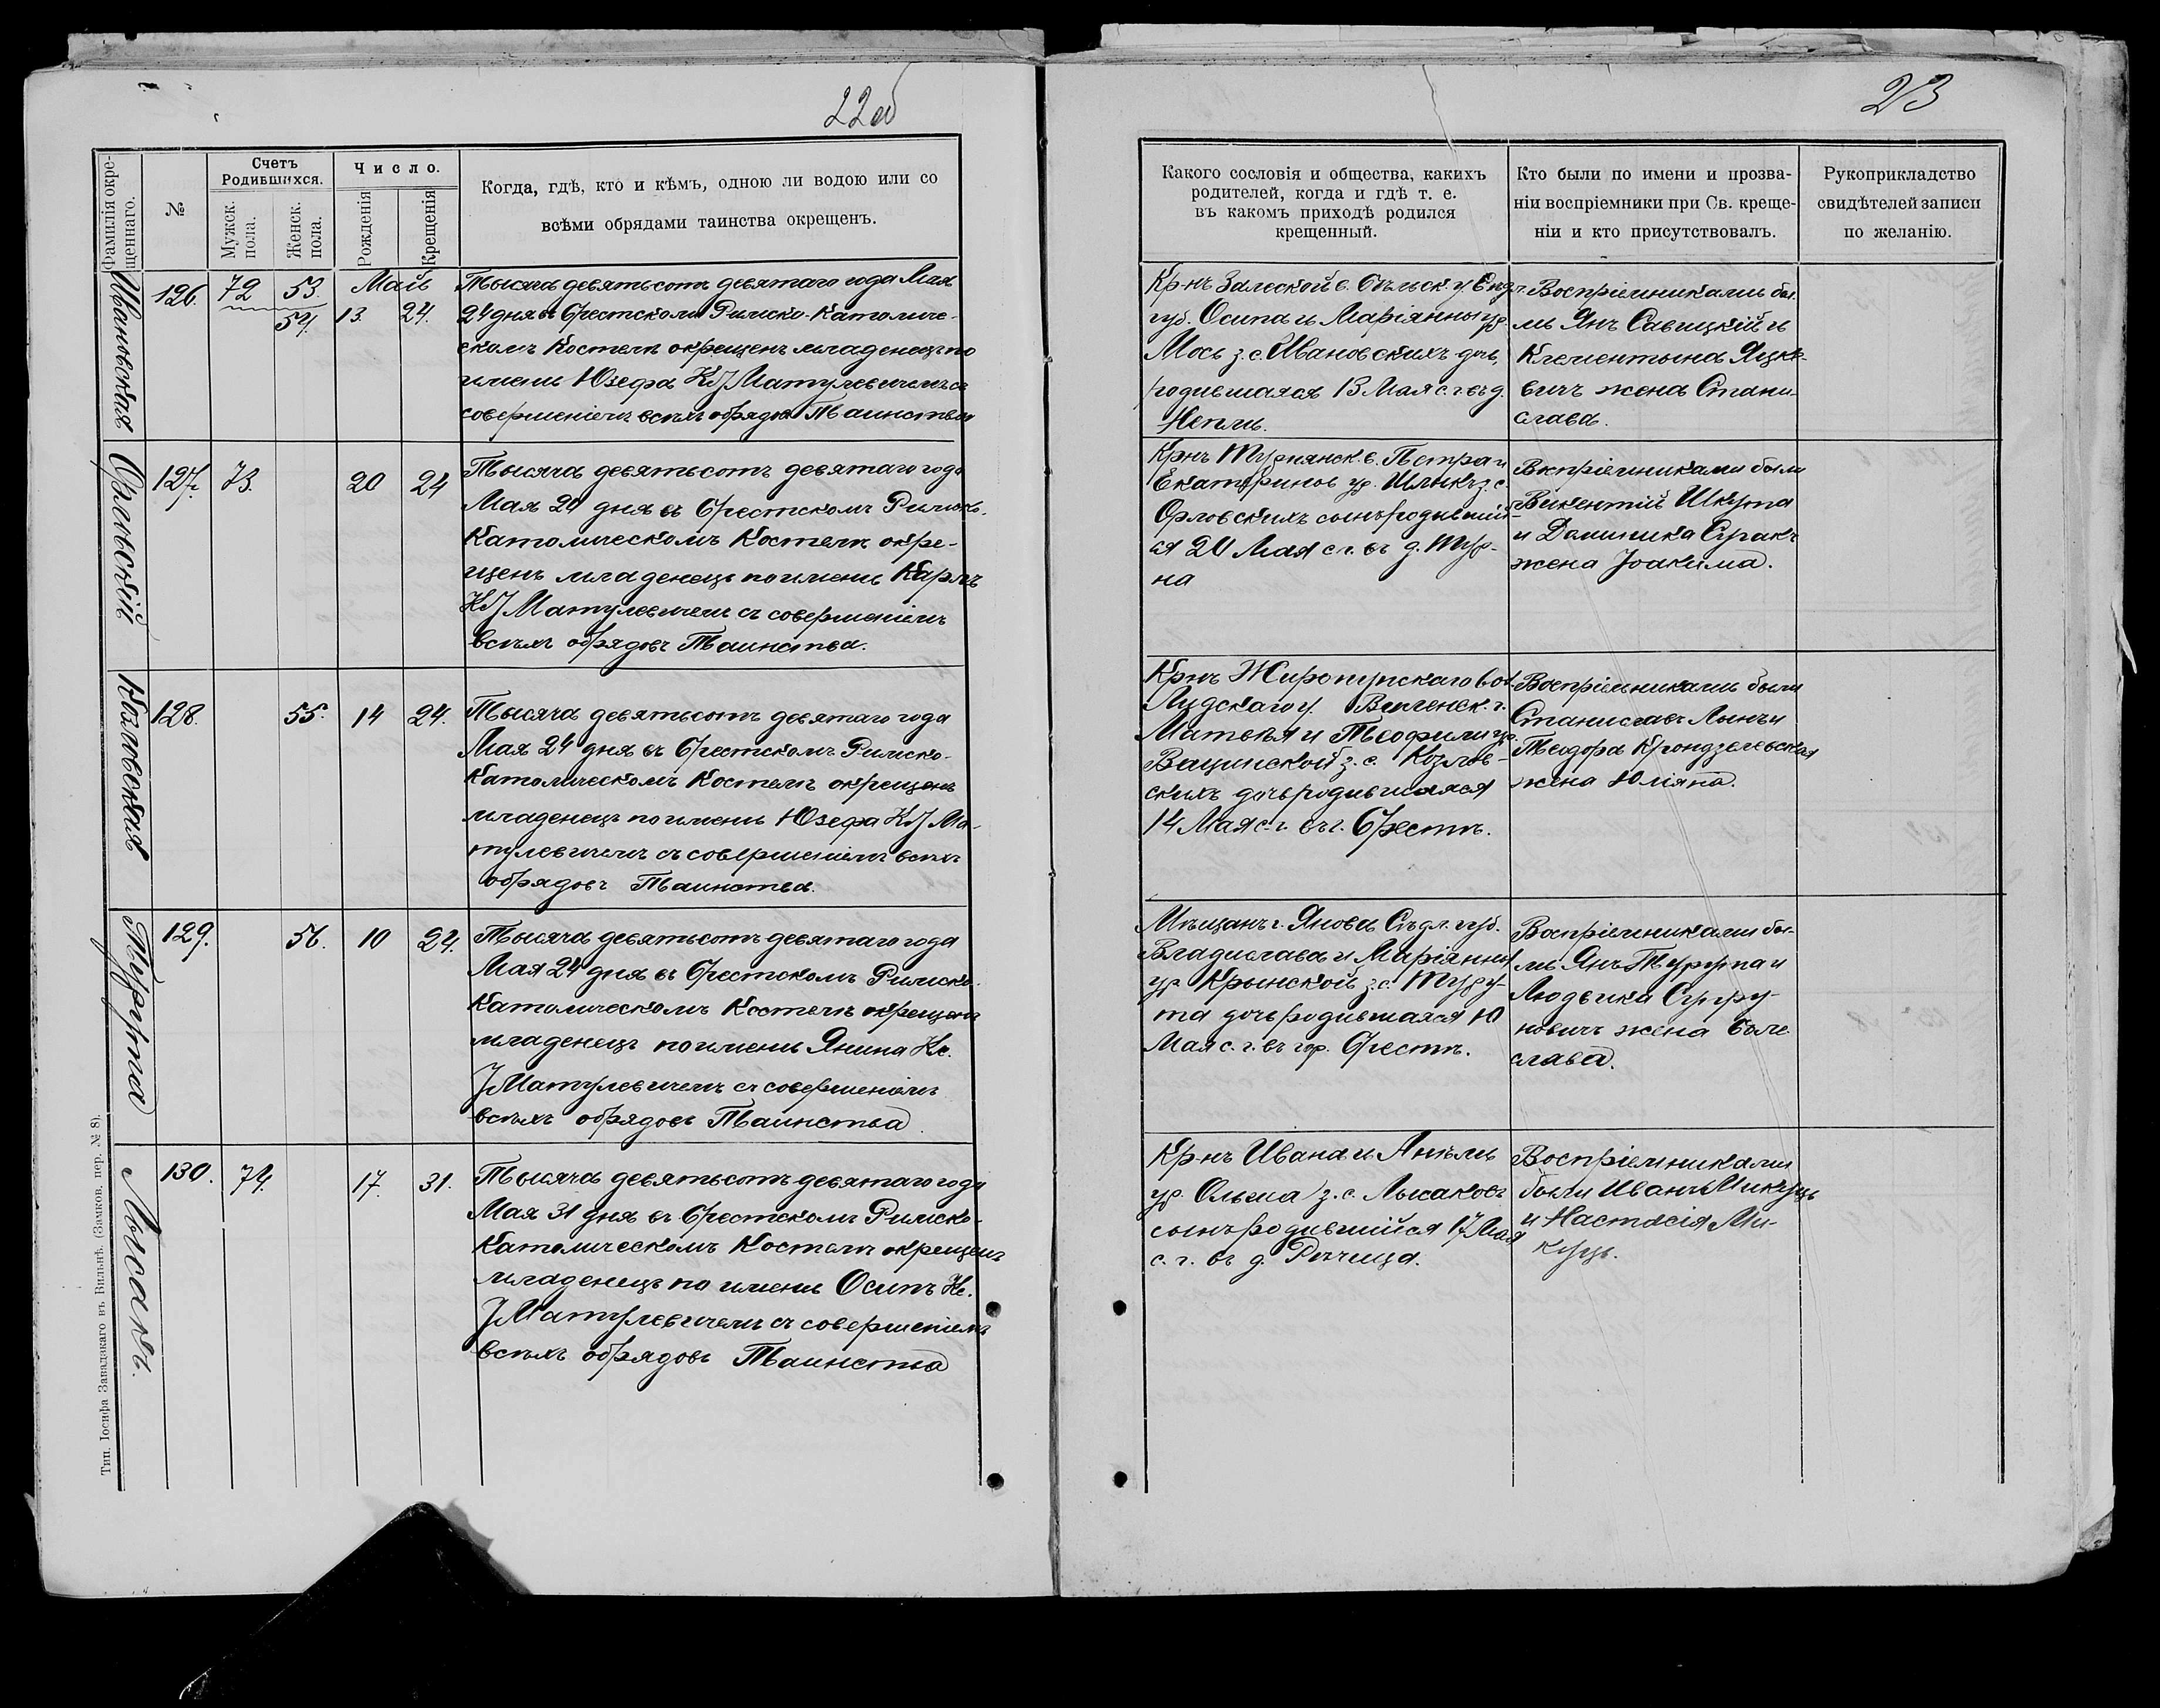 22об
23
Фамилія окре-
щеннаго.
№
Счетъ
Родившихся.
Мужск.
пола.
Женск.
пола.
Число.
Рожденія
Крещенія
Когда, гдѣ, кто и кѣмъ, одною ли водою или со
всѣми обрядами таинства окрещенъ.
Какого сословія и общества, какихъ
родителей, когда и гдѣ т. е.
въ какомъ приходѣ родился
крещенный.
Кто были по имени и прозва-
ніи воспріемники при Св. креще-
ніи и кто присутствовалъ.
Рукоприкладство
свидѣтелей записи
по желанію.
Ивановская
126.
72
53.
54.
Май
13.
24.
Тысяча девятьсотъ девятаго года Мая
24 дня въ Брестскомъ Римско-Католиче-
скомъ Костелѣ окрещенъ младенецъ по
имени Юзефа Кс. J Матулевичемъ съ
совершеніемъ всѣхъ обрядовъ Таинства
Кр-нъ Залеской в. Бѣльск. у. Сѣдл.
губ. Осипа и Маріянны ур.
Мось з. с. Ивановскихъ дочь,
родившаяся 13 Мая с. г. въ д.
Непли.
Воспріемниками бы-
ли Янъ Савицкій и
Клементына Яцке-
вичъ жена Стани-
слава.
Орловскій
127.
73.
20
24
Тысяча девятьсотъ девятаго года
Мая 24 дня въ Брестскомъ Римско-
Католическомъ Костелѣ окре-
щенъ младенецъ по имени Карлъ
Кс J Матулевичемъ съ совершеніемъ
всѣхъ обрядовъ Таинства.
Крнъ Турнянск. в. Петра и
Екатерины ур. з. с.
Орловскихъ сынъ родившій-
ся 20 Мая с. г. въ д. Тур-
на
Вкпріемниками были
Викентій Шкурпа
и Доминика Суракъ
жена Іоакима.
Козловская
128.
55.
14
24.
Тысяча девятьсотъ девятаго года
Мая 24 дня въ Брестскомъ Римско-
Католическомъ Костелѣ окрещенъ
младенецъ по имени Юзефа Кс J Ма-
тулевичемъ съ совершеніемъ всѣхъ
обрядовъ Таинства.
Крнъ Жирмунскаго вол.
Лидскаго у. Виленск. г.
Матвѣя и Теофили ур.
Вацинской з. с. Козлов-
скихъ дочь родившаяся
14 Мая с. г. въ г. Брестѣ.
Воспріемниками были
Станиславъ и
Теодора Крондзелевская
жена Юліяна.
Турута
129.
56.
10
24.
Тысяча девятьсотъ девятаго года
Мая 24 дня въ Брестскомъ Римско-
Католическомъ Костелѣ окрещенъ
младенецъ по имени Янина Кс.
J Матулевичемъ съ совершеніемъ
всѣхъ обрядовъ Таинства.
Мѣщанъ г. Янова Сѣдл. губ.
Владислава и Маріянны
ур. Крынской з. с. Туру-
та дочь родившаяся 10
Мая с. г. въ гор. Брестѣ.
Воспріемниками бы-
ли Янъ Турута и
Людвика
новичъ жена Боле-
слава.
Лысакъ.
130.
74.
17.
31.
Тысяча девятьсотъ девятаго года
Мая 31 дня въ Брестскомъ Римско-
Католическомъ Костелѣ окрещенъ
младенецъ по имени Осипъ Кс.
J Матулевичемъ съ совершеніемъ
всѣхъ обрядовъ Таинства
Кр-нъ Ивана и Анели
ур. Ольма з. с. Лысаковъ
сынъ родившійся 17 Мая
с. г. въ д. Рѣчица.
Воспріемниками
были Иванъ Микуць
и Настасія Ми-
куць.
Тип. Іосифа Завадзкаго въ Вильнѣ. (Замков. пер. № 8).